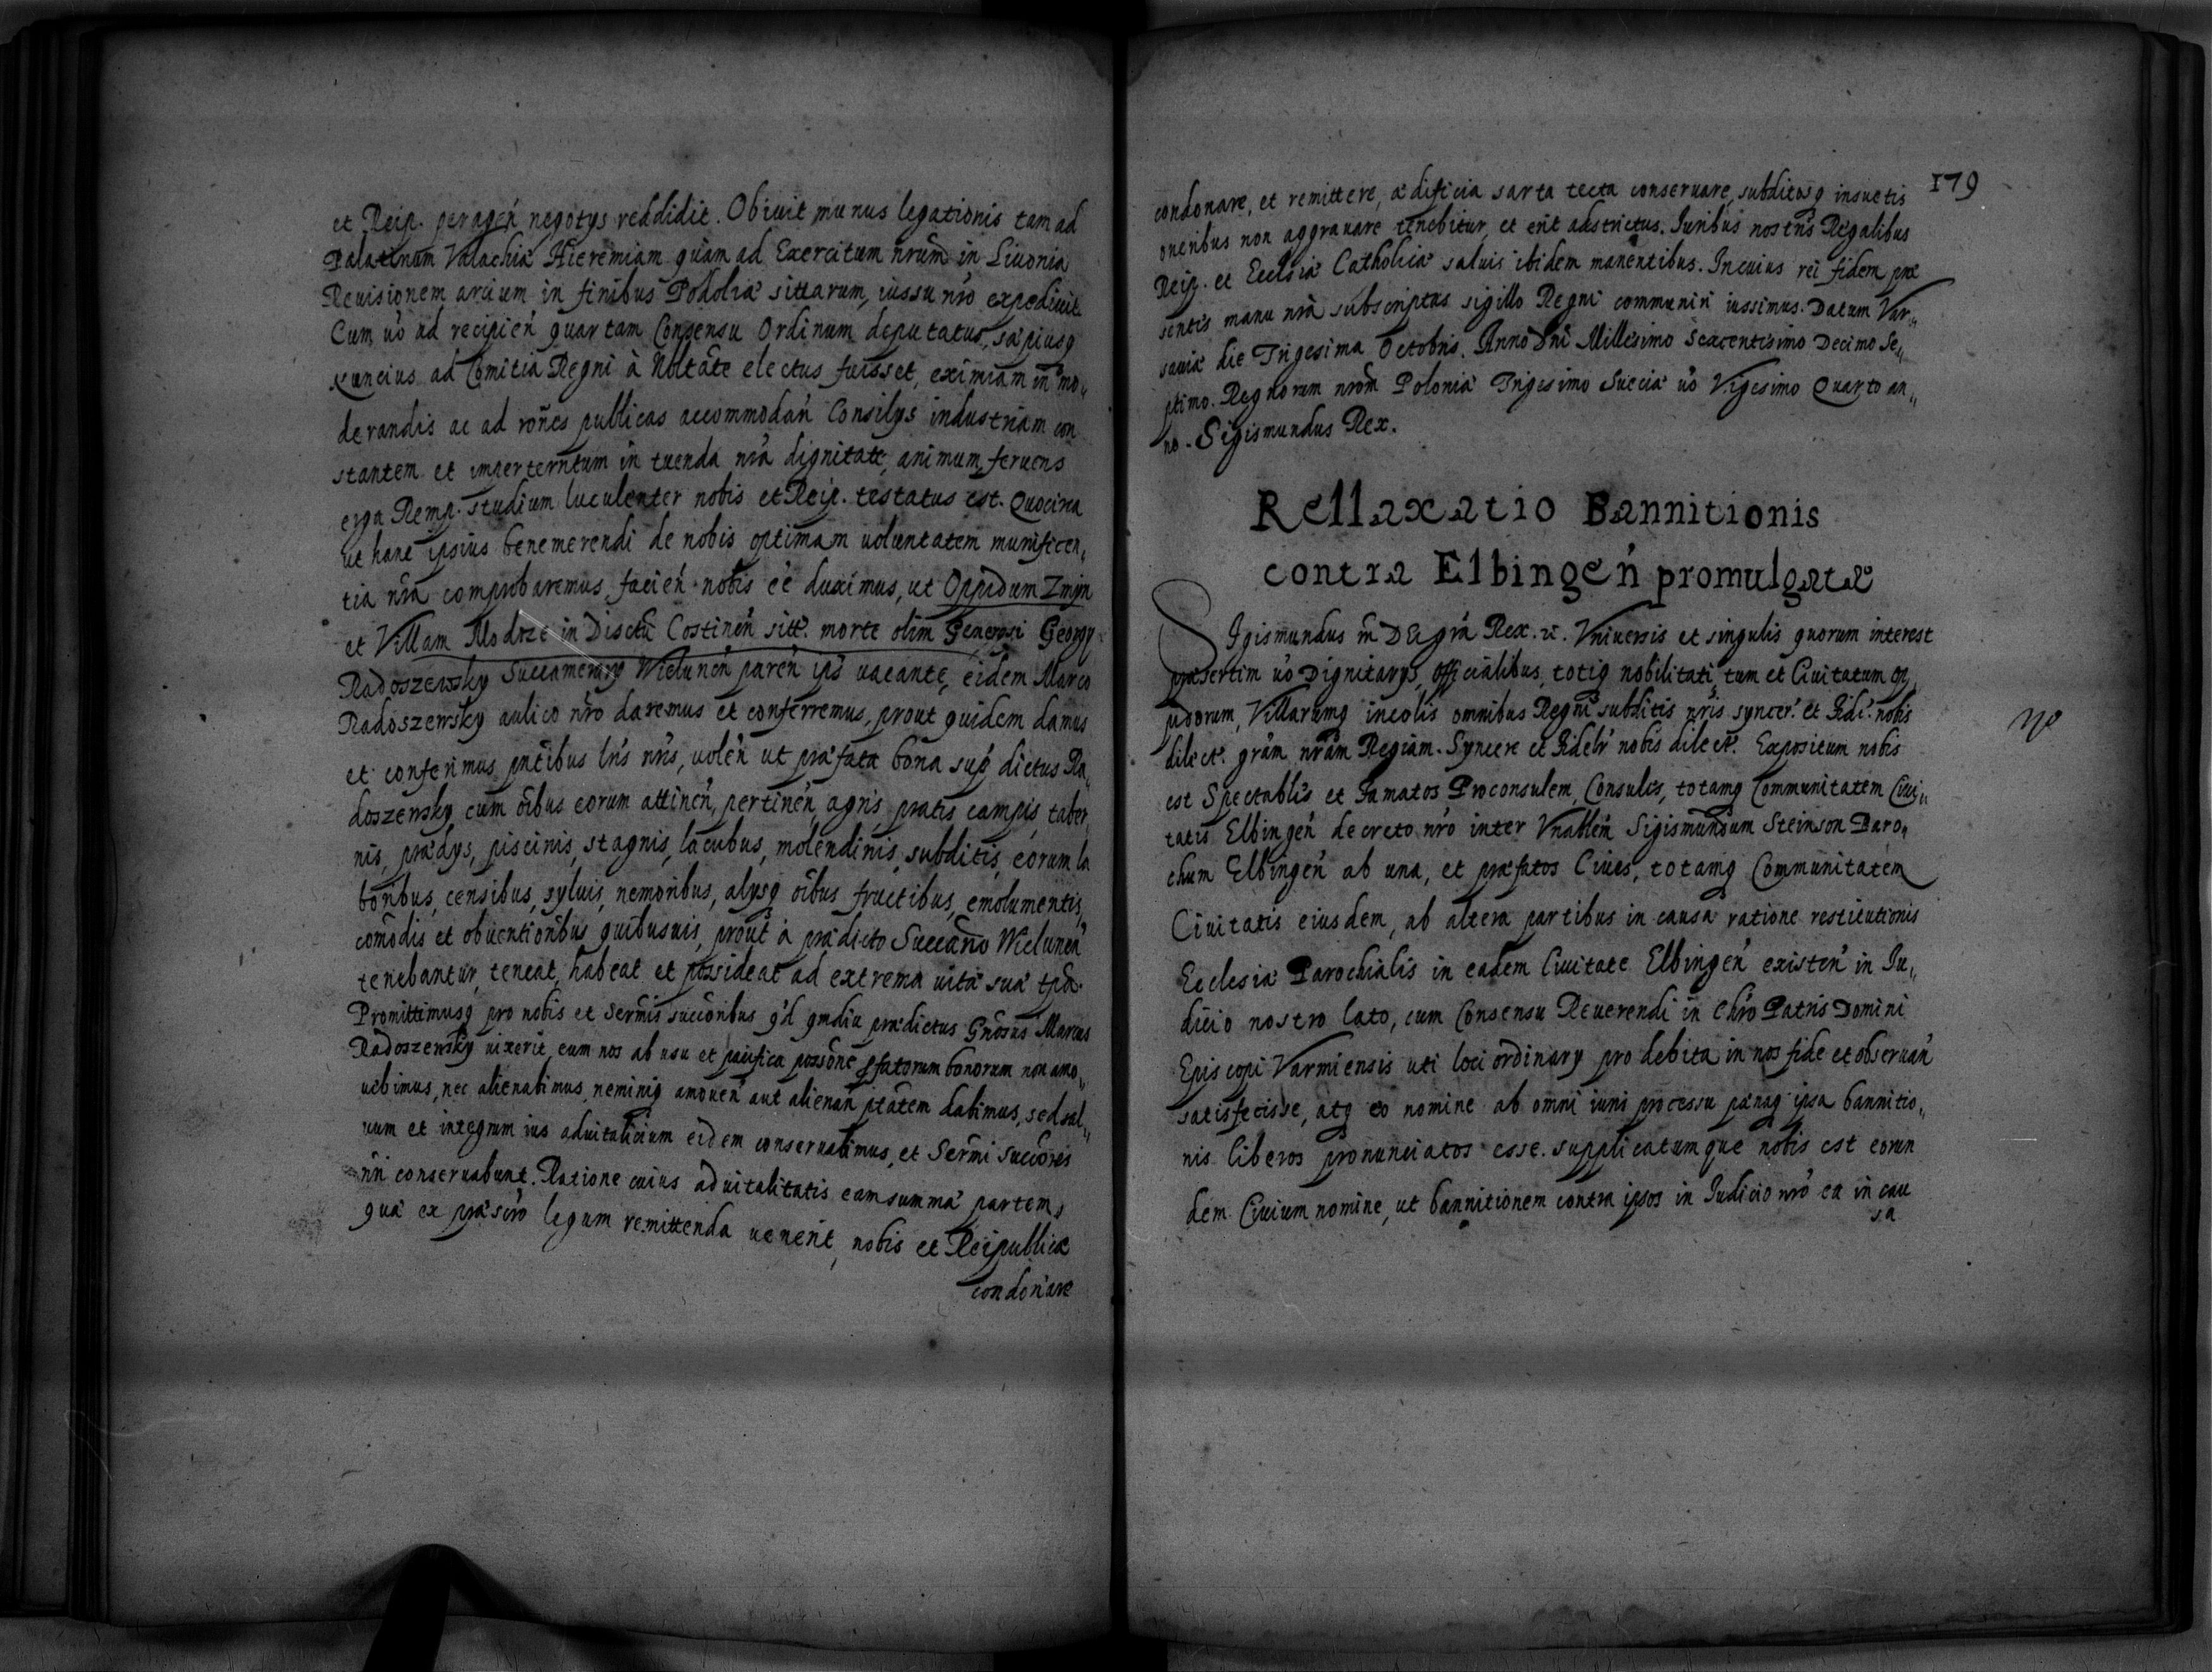 et Reip. peragen̄ negotys reddidit. Obiuit munus legationis tam ad
Palatinum Valachiæ Hieremiam quam ad Exercitum nrum̄ in Liuonia
Reuisionem arcium in finibus Podoliæ sittarum, iussu nr̄o expediuit.
Cum uō ad recipien̄ quartam Consensu Ordinum deputatus, sæpiusq
Nuncius ad Comitia Regni à Nbltāte electus fuisset, eximiam in mo„
derandis ac ad rōnes publicas accommodan̄ Consilys industriam con
stantem et imperterritum in tuenda nrā dignitate, animum, feruens
erga Remp. studium luculenter nobis et Reip. testatus est. Quocirca
ut hanc ipsius benemerendi de nobis optimam uoluntatem munificen„
tia nrā comprobaremus, facien̄ nobis eē duximus, ut Oppidum Zmyn
et Villam Modrze in Distctū Costinen̄ sitt. morte olim Generosi Georgy
Radoszewsky Succamerary Wielunen̄ paren̄ ips̄ uacante, eidem Marco
Radoszewsky aulico nrō daremus et conferremus, prout quidem damus
et conferimus pn̄tibus lrīs nrīs, uolen̄ ut præfata bona sup̄ dictus Ra„
doszewsky cum oībus eorum attinen̄, pertinen̄, agris, pratis campis, taber
nis, prædys, piscinis, stagnis, lacubus, molendinis, subditis, eorum la
boribus, censibus, syluis, nemoribus, alysq oībus fructibus, emolumentis,
comōdis et obuentiōnibus quibusuis, prout à prædicto Succāno Wielunen̄
tenebantur, teneat, habeat et possideat ad extrema uitæ suæ tp̄a.
Promittimusq pro nobis et Sermīs succōribus q̄d qmdiu prædictus Gnōsus Marcus
Radoszewsky uixerit, eum nos ab usu et pacifica possōne pfatorum bonorum non amo„
uebimus, nec alienabimus, neminiq amouen̄ aut alienan̄ ptātem dabimus, sed sal„
uum et integrum ius aduitalicium eidem conseruabimus, et Sermī succōres
nrī conseruabunt. Ratione cuius aduitalitatis eam summæ partem,
quæ ex præscrō legum remittenda uenerit, nobis et Reipublicæ
condonare
179
condonare, et remittere, ædificia sarta tecta conseruare, subditosq insuetis
oneribus non aggrauare tenebitur, et erit adstrictus. Iuribus nostris Regalibus
Reip. et Ecclsiæ Catholicæ saluis ibidem manentibus. In cuius rei fidem præ
sentis manu nrā subscriptas sigillo Regni communiri iussimus. Datum Var„
sauiæ die Trigesima Octobris. Anno Dnī Millesimo Sexcentesimo Decimo Se„
ptimo. Regnorum nrōm Poloniæ Trigesimo Sueciæ uō Vigesimo Quarto an„
no. Sigismundus Rex.
Rellaxatio Bannitionis
contra Elbingen̄ promulgatæ
SIgismundus IIĪ DEI grā Rex. etc. Vniuersis et singulis quorum interest
præsertim uō Dignitarys, Officialibus, totiq nobilitati, tum et Ciuitatum op„
pidorum, Villarumq incolis omnibus Regni subditis nrīs synceŕ. et Fidé. nobis
dilect. grām nrām Regiam. Syncere et Fidelr̄ nobis dilect. Expositum nobis
est Spectablīs et Famatos Proconsulem, Consules, totamq Communitatem Ciui„
tatis Elbingen̄ decreto nrō inter Vnablēm Sigismundum Steinson Paro„
chum Elbingen̄ ab una, et præfatos Ciues, totamq Communitatem
Ciuitatis eiusdem, ab altera partibus in causa ratione restitutionis
Ecclesiæ Parochialis in eadem Ciuitate Elbingen̄ existen̄ in Iu„
dicio nostro lato, cum Consensu Reuerendi in Chrō Patris Domini
Episcopi Varmiensis uti loci ordinary pro debita in nos fide et obseruan̄
satisfecisse, atq eo nomine ab omni iuris processu pænaq ipsa bannitio„
nis liberos pronunciatos esse. supplicatumque nobis est eorun
dem Ciuium nomine, ut bannitionem contra ipsos in Iudicio nrō ea in cau
sa